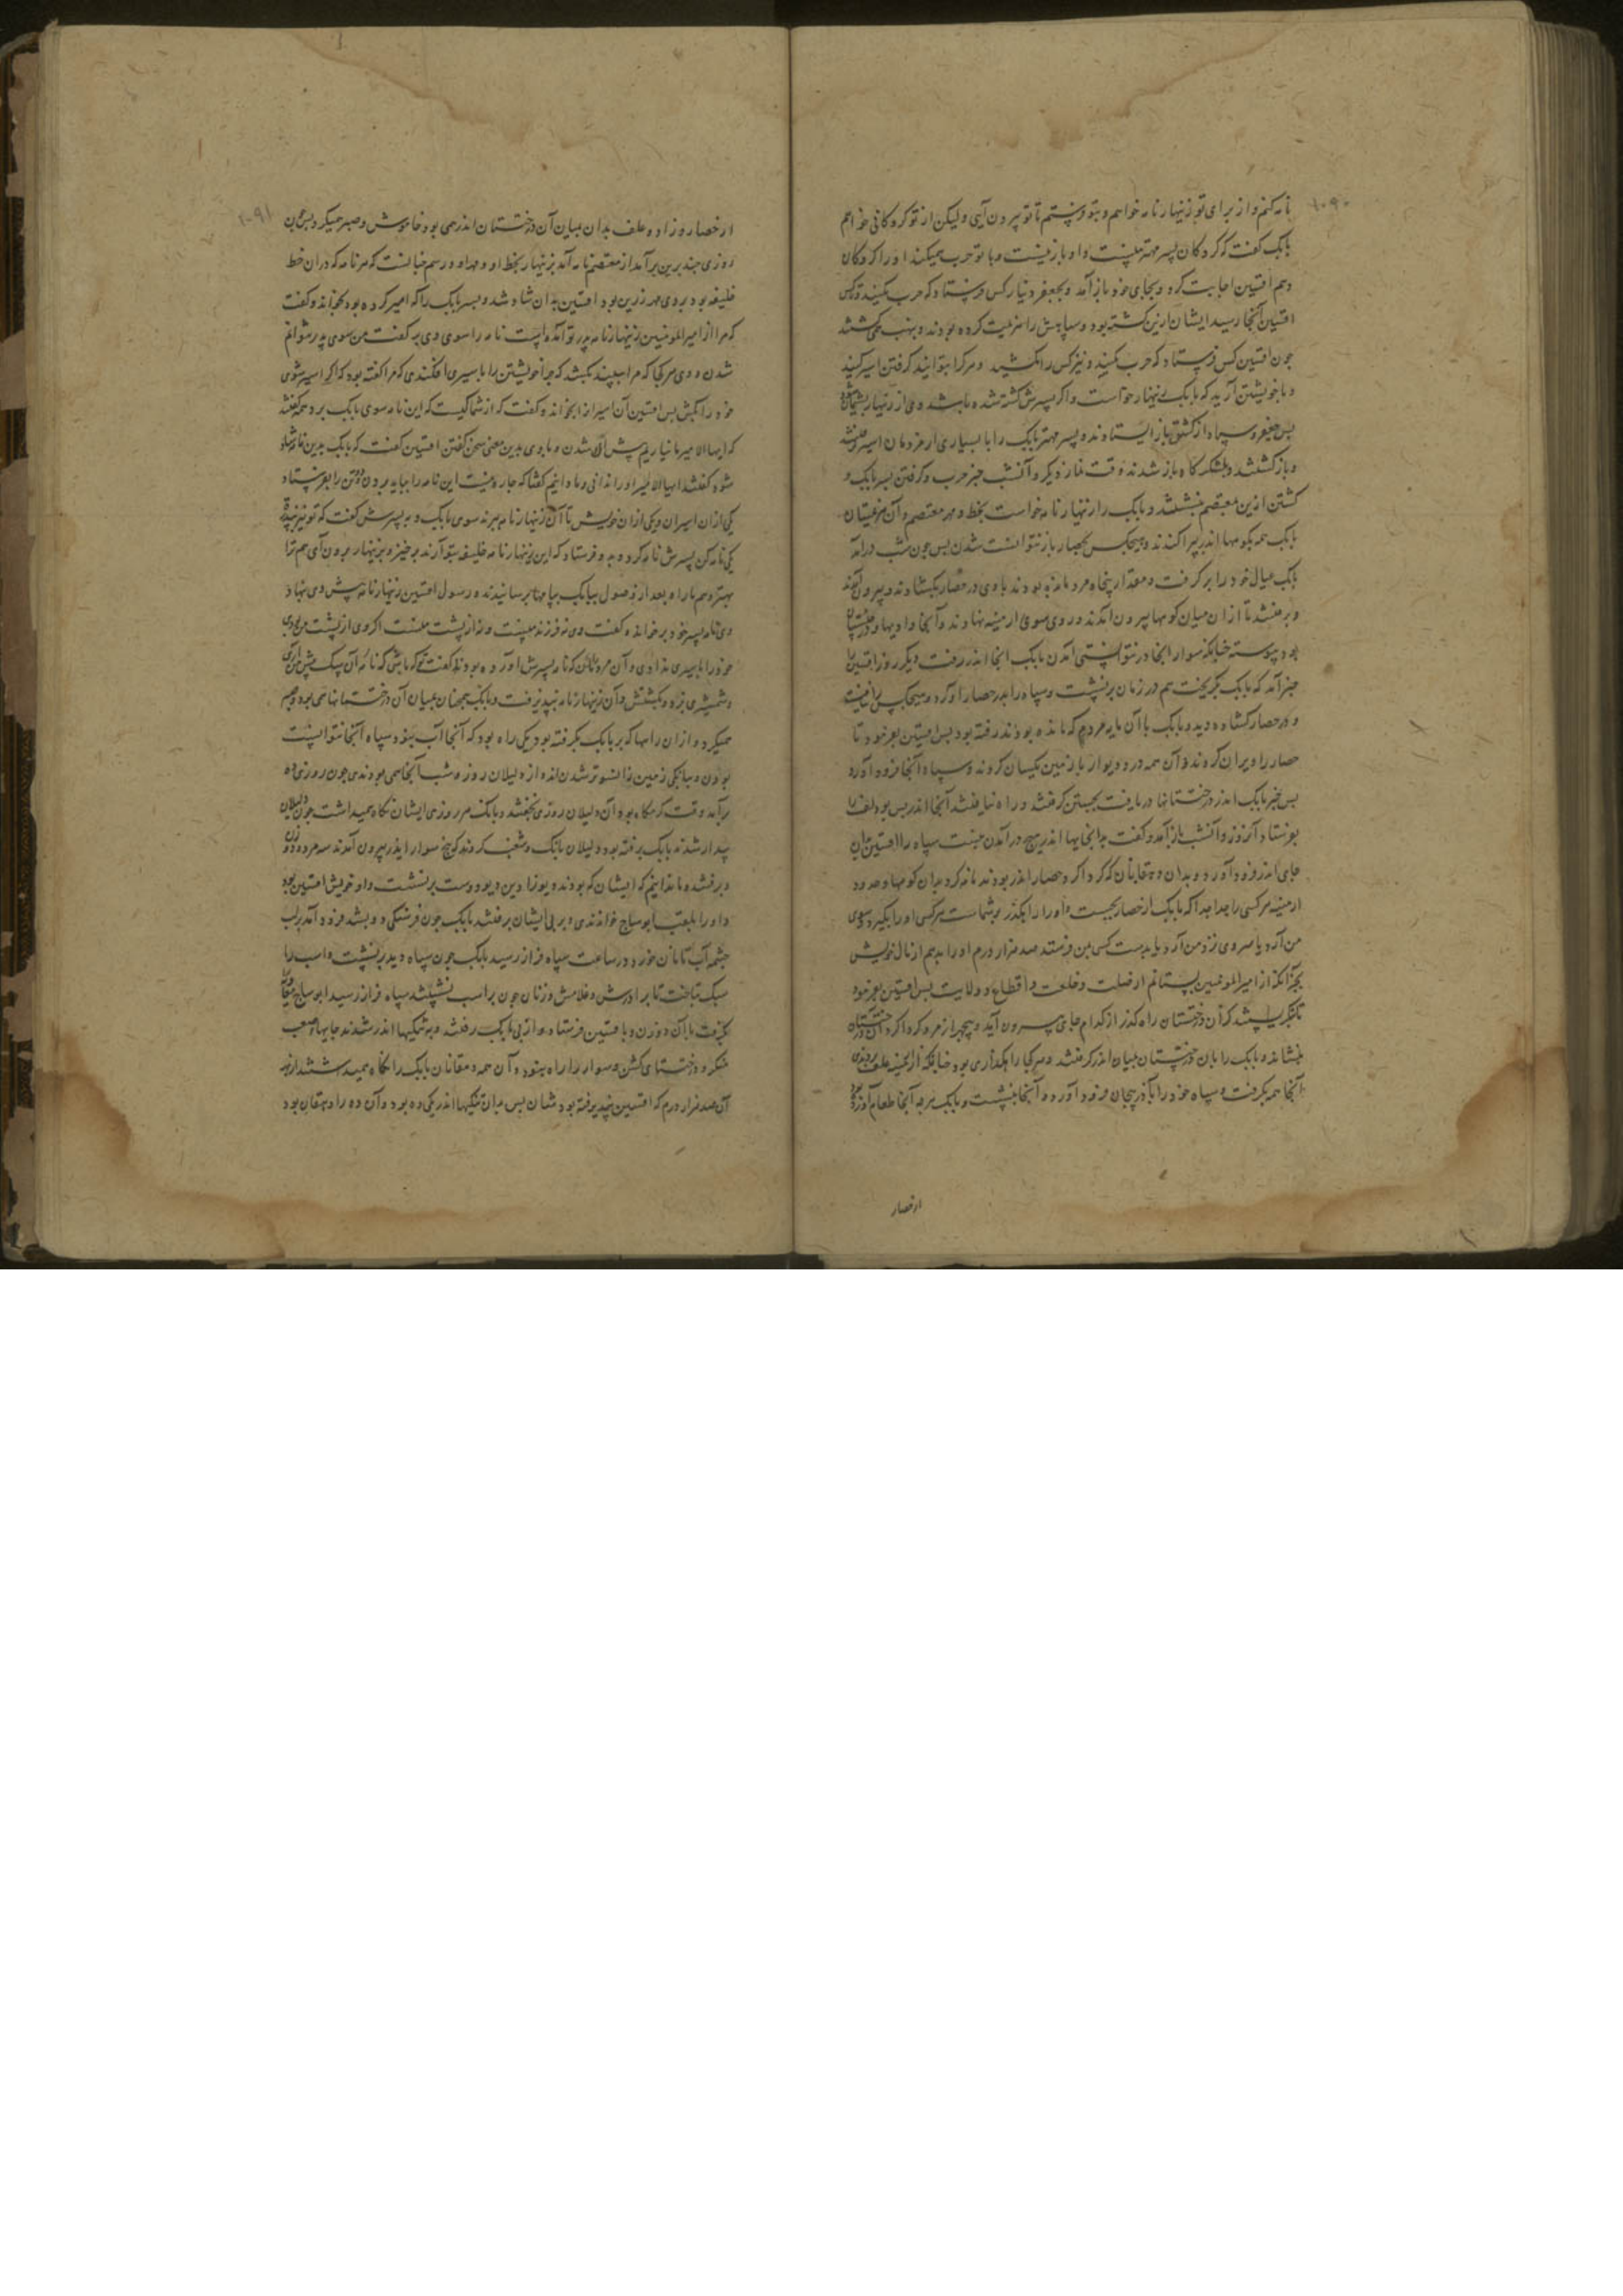 نامه کنم و از برای تو زینهار نامه خواهم و بتو فرستم تا تو بیرون آیی ولیکن از تو گروکانی خواهم
بابک گفت که گروکان پسر مهتر منست و او بازنیست و با تو حرب میکند او را گروکان
دهم افتین اجابت کرد و بجای خود باز آمد و بجعفر دینار کس فرستاد که حرب مکنید و کس
افتین آنجا رسید ایشان کشته بود و سپاهش را هزیمت کرده بودند و همی کشتند
چون افتین کس فرستاد که حرب مکنید و نیز کس را مکشید و هرکرا بتوانید گرفتن اسیر کنید
و با خویشتن آرید که بابک زینهار خواست و اگر پسرش کشته شده باشد وی از زنهار پشیمان شود
پس جعفر و سپاه از کشتن باز ایستادند و پسر مهتر بابک را با بسیاری از مردمان اسیر گرفتند
و باز گشتند و بلشکرگاه باز شدند وقت نماز دیگر و آنشب خبر حرب و گرفتن پسر بابک و
کشتن ازین بمعتصم بنبشتند و بابک را زنهار نامه خواست بخط و مهر معتصم و آن هزیمتیان
بابک همه بکوهها اندر پراکندند و هیچکس بحصار باز نتوانست شدن پس چون شب درآمد
بابک عیال خود را برگرفت و مقدار پنجاه مرد مانده بودند با وی در حصار بکشادند و بیرون آمدند
و برفتند تا از آن میان کوهها بیرون آمدند و روی سوی ارمینیه نهادند و آنجا وادیها و درختستان
بود پیوسته چنانکه سوار آنجا در نتوانستی آمدن بابک آنجا اندر رفت دیگر روز افتین را
خبر آمد که بابک بگریخت هم در زمان برنشست و سپاه را بدر حصار آورد و هیچکس را نیافت
و در حصار کشاده دید و بابک با آن مایه مردم که مانده بودند رفته بود پس افتین بفرمود تا
حصار را ویران کردند و آن همه در و دیوار با زمین یکسان کردند و سپاه آنجا فرود آورد
پس خبر بابک اندر درختستانها دریافت بجستن گرفتند و راه نیافتند آنجا اندر پس بودلف را
بفرستاد آنروز و آنشب باز آمد و گفت بدانجایها اندر هیچ درآمدن نیست سپاه را افتین بدان
جای اندر فرود آورد و بدان دهقانان که گرداگرد حصار اندر بودند نامه کرد بدان کوهها و حدود
ارمنیه هرکسی را جداجدا که بابک از حصار بجست و او را راهگذر بر شماست هرکسی او را بگیرد و سوی
من آرد یا سر وی نزد من آرد یا بدست کسی بمن فرستد صد هزار درم او را بدهم از مال خویش
بجز آنکه از امیرالمؤمنین بستانم از صلت و خلعت و اقطاع و ولایت پس افتین بفرمود
تا کذر آن درختستان راه کذر از کدام جای بیرون آید و پنجهزار مرد گرداگرد آن درختستان
بنشاند و بابک را بان درختستان بمیان اندر گرفتند و هرکجا راهکذاری بود
آنجا همه بکرفت و سپاه خود را بآذربیجان فرود آورد و آنجا بنشست و بابک هرچه آنجا طعام
از حصار
از حصار و زاد و علف بدان میان آن درختستان اندر همی بود خاموش و صبر همیکرد پس چون
روزی چند برین برآمد از معتصم نامه آمد بزنهار بخط او و مهر او و رسم چنانست که هر نامه که دران خط
خلیفه بود بر وی مهر زرین بود افتین بدان شاد شد و پسر بابک را که اسیر کرده بود بخواند و گفت
که مرا از امیرالمؤمنین زینهار نامه پدر تو آمده است نامه را سوی وی بر گفت من سوی پدر نتوانم
شدن و وی هرکجا که مرا ببیند بکشد که چرا خویشتن را باسیری افکندی که مرا گفته بود که اگر اسیر شوی
خود را بکش پس افتین آن اسیران را بخواند و گفت که از شما کیست که این نامه سوی بابک برد همه گفتند
که ایها الامیر ما نیاریم پیش آن شدن و با وی بدین معنی سخن گفتن افتین گفت که بابک بدین نامه شاد
شود گفتند ایها الامیر او را ندانی و ما دانیم گفتا که چاره نیست این نامه را بباید بردن و دو تن را بفرستاد
یکی ازان اسیران و یکی ازان خویش تا آن زینهار نامه ببرند سوی بابک و به پسرش گفت که تو نیز
یکی نامه کن پسرش نامه کرد و بدو فرستاد که این زینهار نامه خلیفه بتو آرند برخیز و بزینهار بیرون آی هم ترا
بهتر و هم ما را و بعد از وصول ببابک پیامها برسانیدند و رسول افتین زینهار نامه پیش وی نهاد
وی نامه پسر خود برخواند و گفت وی نه فرزند منست و نه از پشت منست اگر وی از پشت من بودی
خود را باسیری ندادی و آن مرد را که نامه پسرش آورده بود گفت تو که باشی که نامه آن سک پیش من آری
و شمشیری بزد و بکشتش و آن زینهار نامه نپذیرفت و بابک همچنان بمیان آن درختستانها همی بود و صبر
همیکرد و ازان راهها که بر بابک بگرفته بود یکی راه بود که آنجا آب نبود و سپاه آنجا نتوانست
بودن و بیابکی زمین زانسوتر شدند از دلیلان روز و شب آنجا همی بودندی چون روزی ده
برآمد وقت گرمگاه بود آن دلیلان روزی بخفتند و بابک هر روزی ایشان نگاه همیداشت چون دلیلان
بیدار شدند بابک رفته بود و دلیلان بانگ و شغب کردند که پنج سوار ایذر بیرون آمدند سه مرد و دو زن
و برفتند و ما ندانیم که ایشان که بودند و یوزا دین دیو دوست برنشست و او خویش افتین بود
و او را بلقب ابوساج خواندندی و بر پی ایشان برفتند بابک چون فرسنگی دو بشد فرود آمد بر لب
چشمه آب تا نان خورد در ساعت سپاه فراز رسید بابک چون سپاه دید برنشست و اسب را
سبک بتاخت تا برادرش و غلامش و زنان چون بر اسب نشستند سپاه فراز رسید ابوساج
بگرفت با آن دو زن و بافتین فرستاد و از پی بابک رفتند و به تنگیها اندر شدند جایها صعب
و درختستانی کشن و سوار را راه نبود و آن همه دهقانان بابک را نگاه میداشتند از بهر
آن صد هزار درم که افتین بپذیرفته بود شان پس بدان تنگیها اندر یکی ده بود و آن ده را دهقان بود